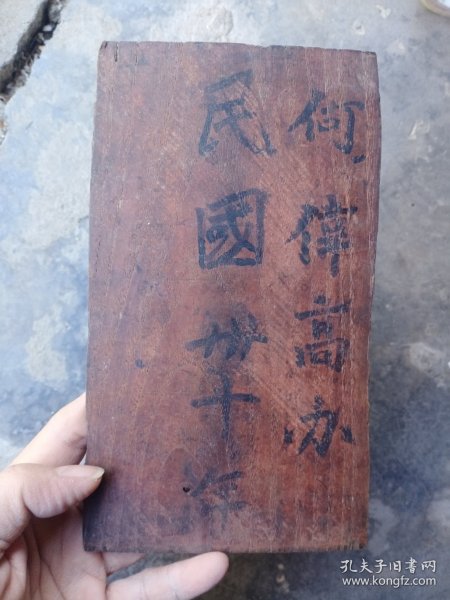 何偉高办
民國卅十年
孔夫子旧书网
www.kongfz.com